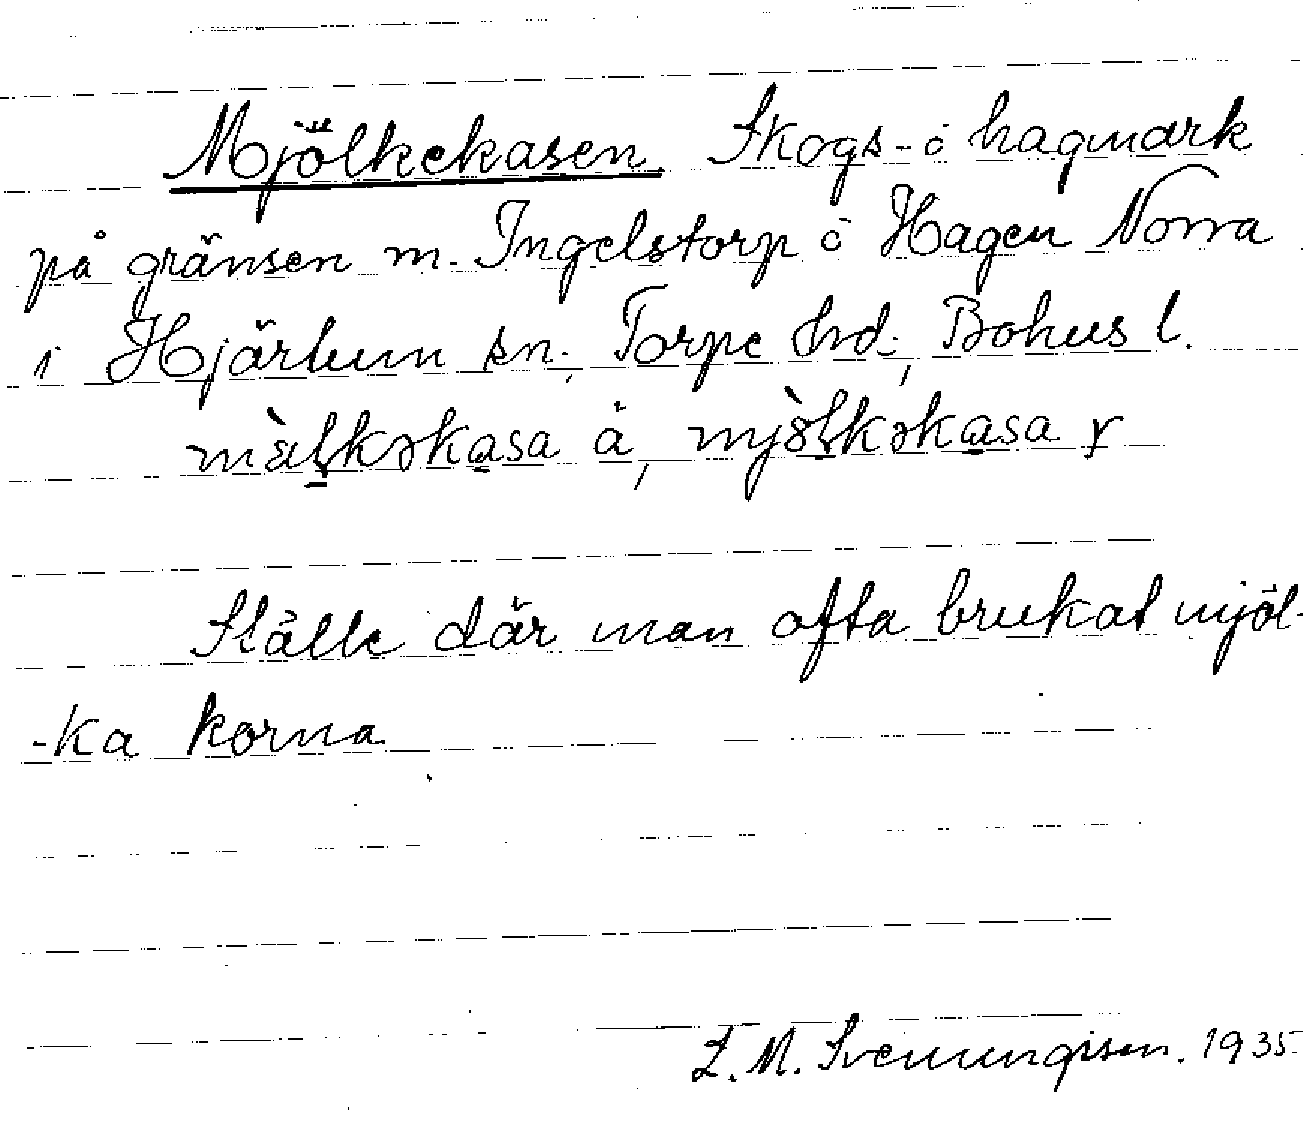 Mjölkekasen. Skogs- o hagmark
på gränsen m. Ingelstorp o Hagen Norra
i Hjärtum sn., Torpe hrd., Bohus l.
kasa å, kasa y
Ställe där man ofta brukat mjöl-
-ka korna
L. M. Svenungsson. 1935